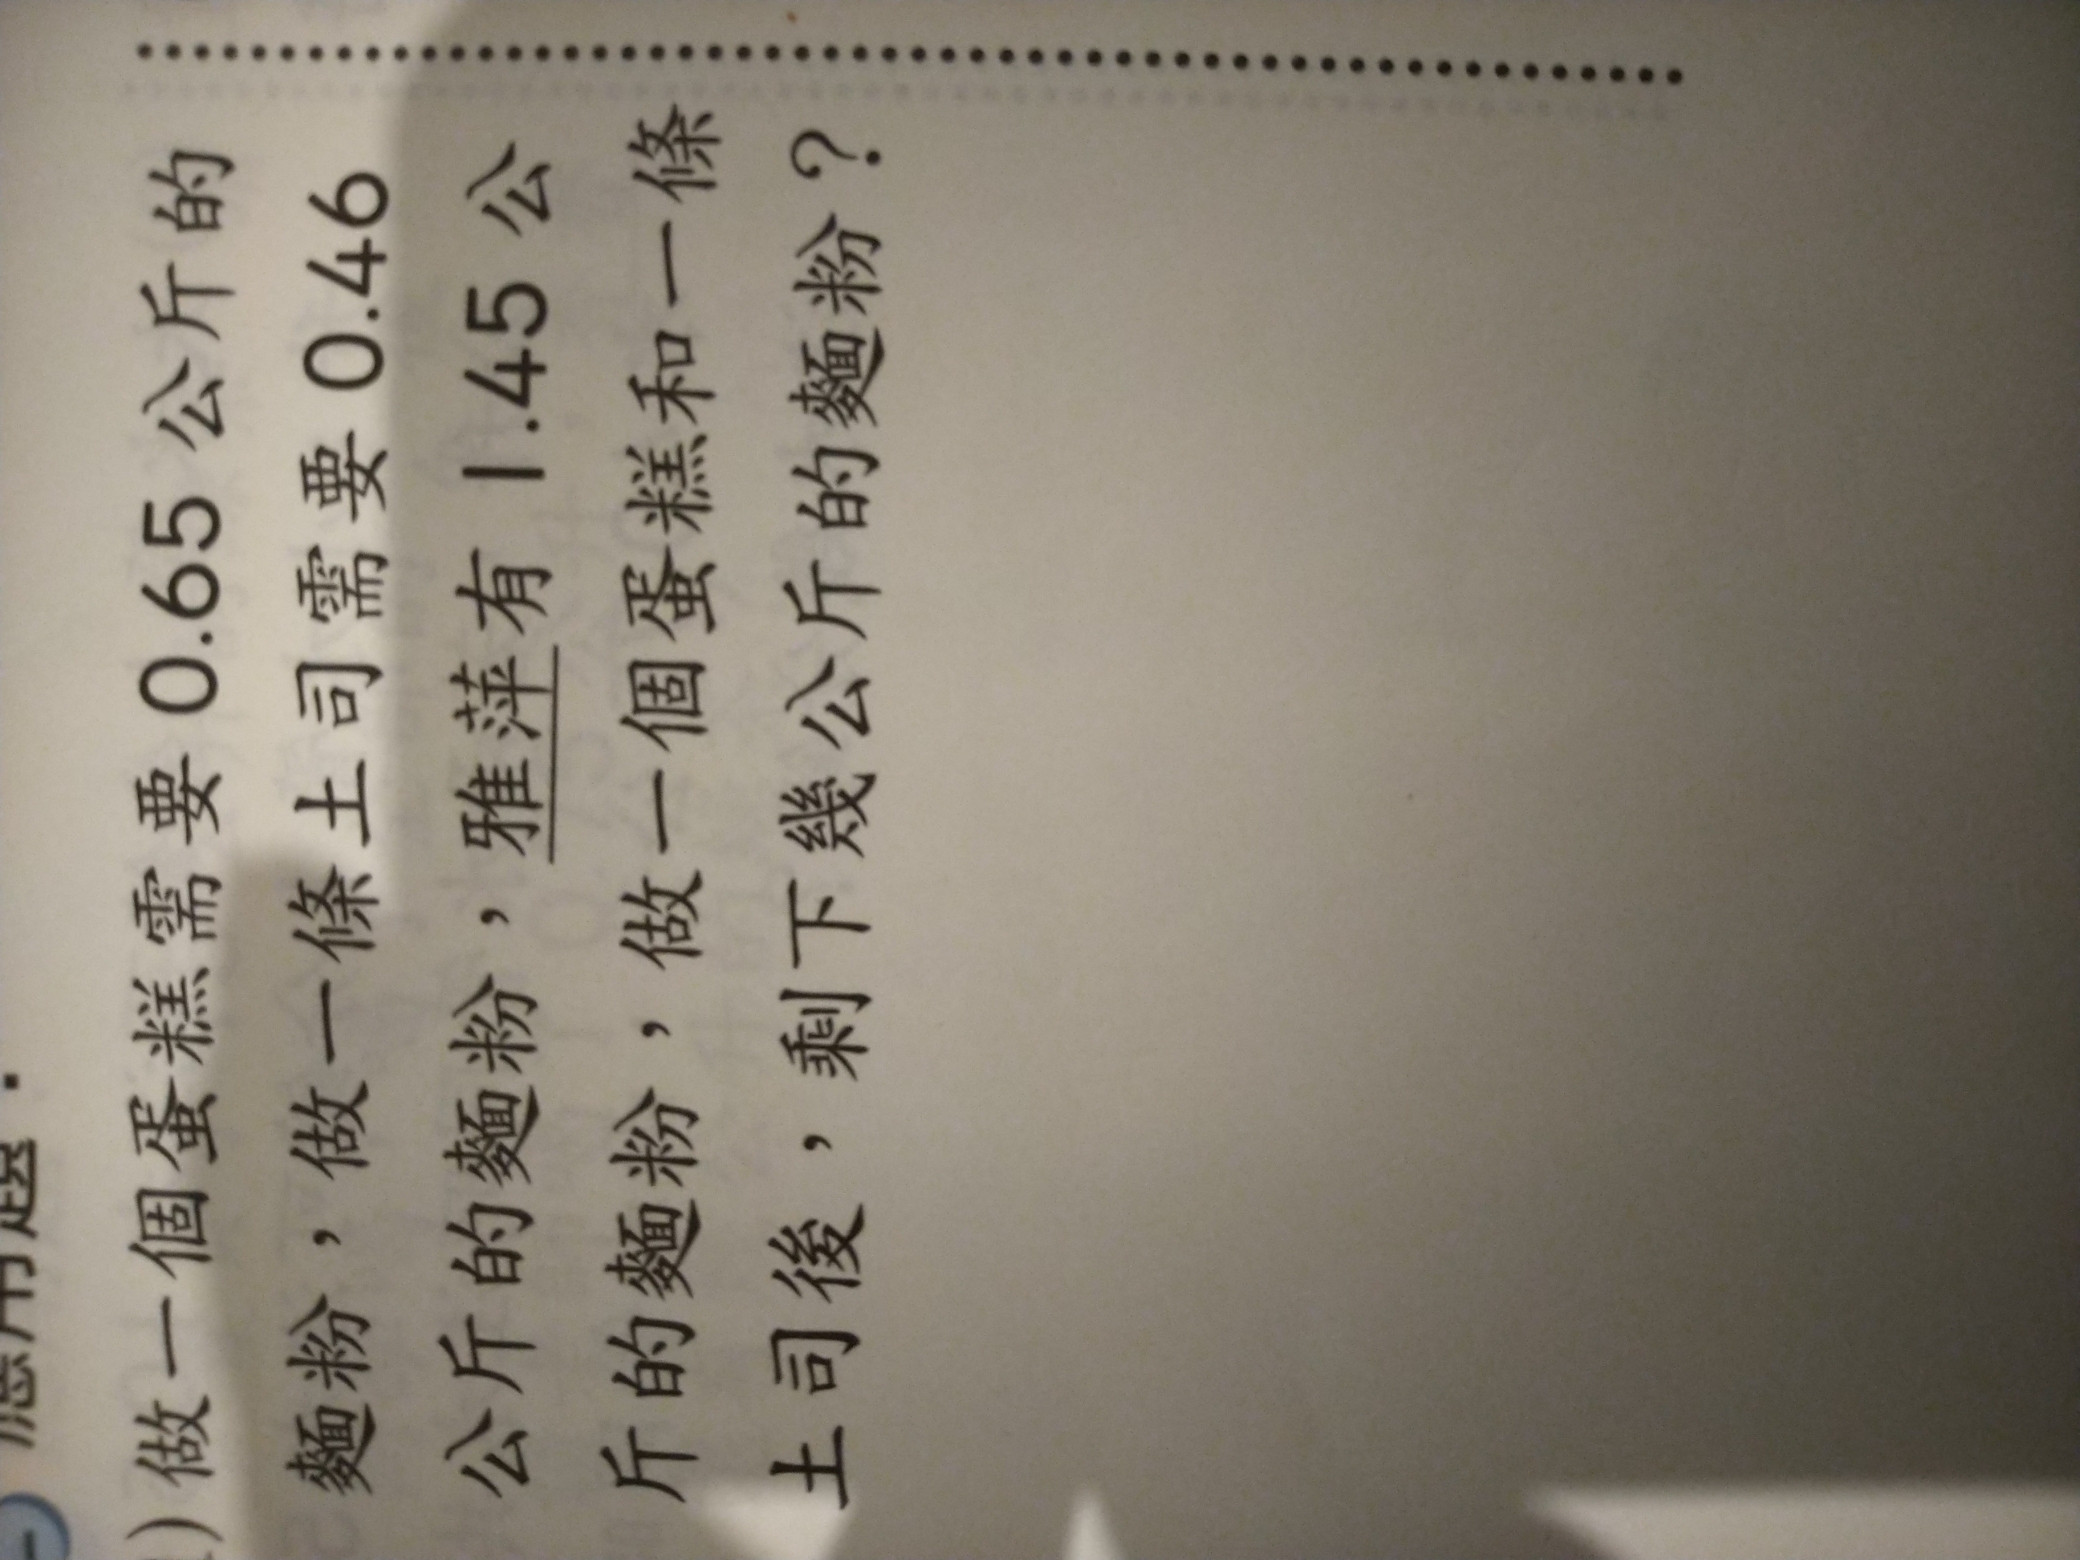 應用題：
做一個蛋糕需要 0.65 公斤的
麵粉，做一條土司需要 0.46
公斤的麵粉，雅萍有 1.45 公
斤的麵粉，做一個蛋糕和一條
土司後，剩下幾公斤的麵粉？